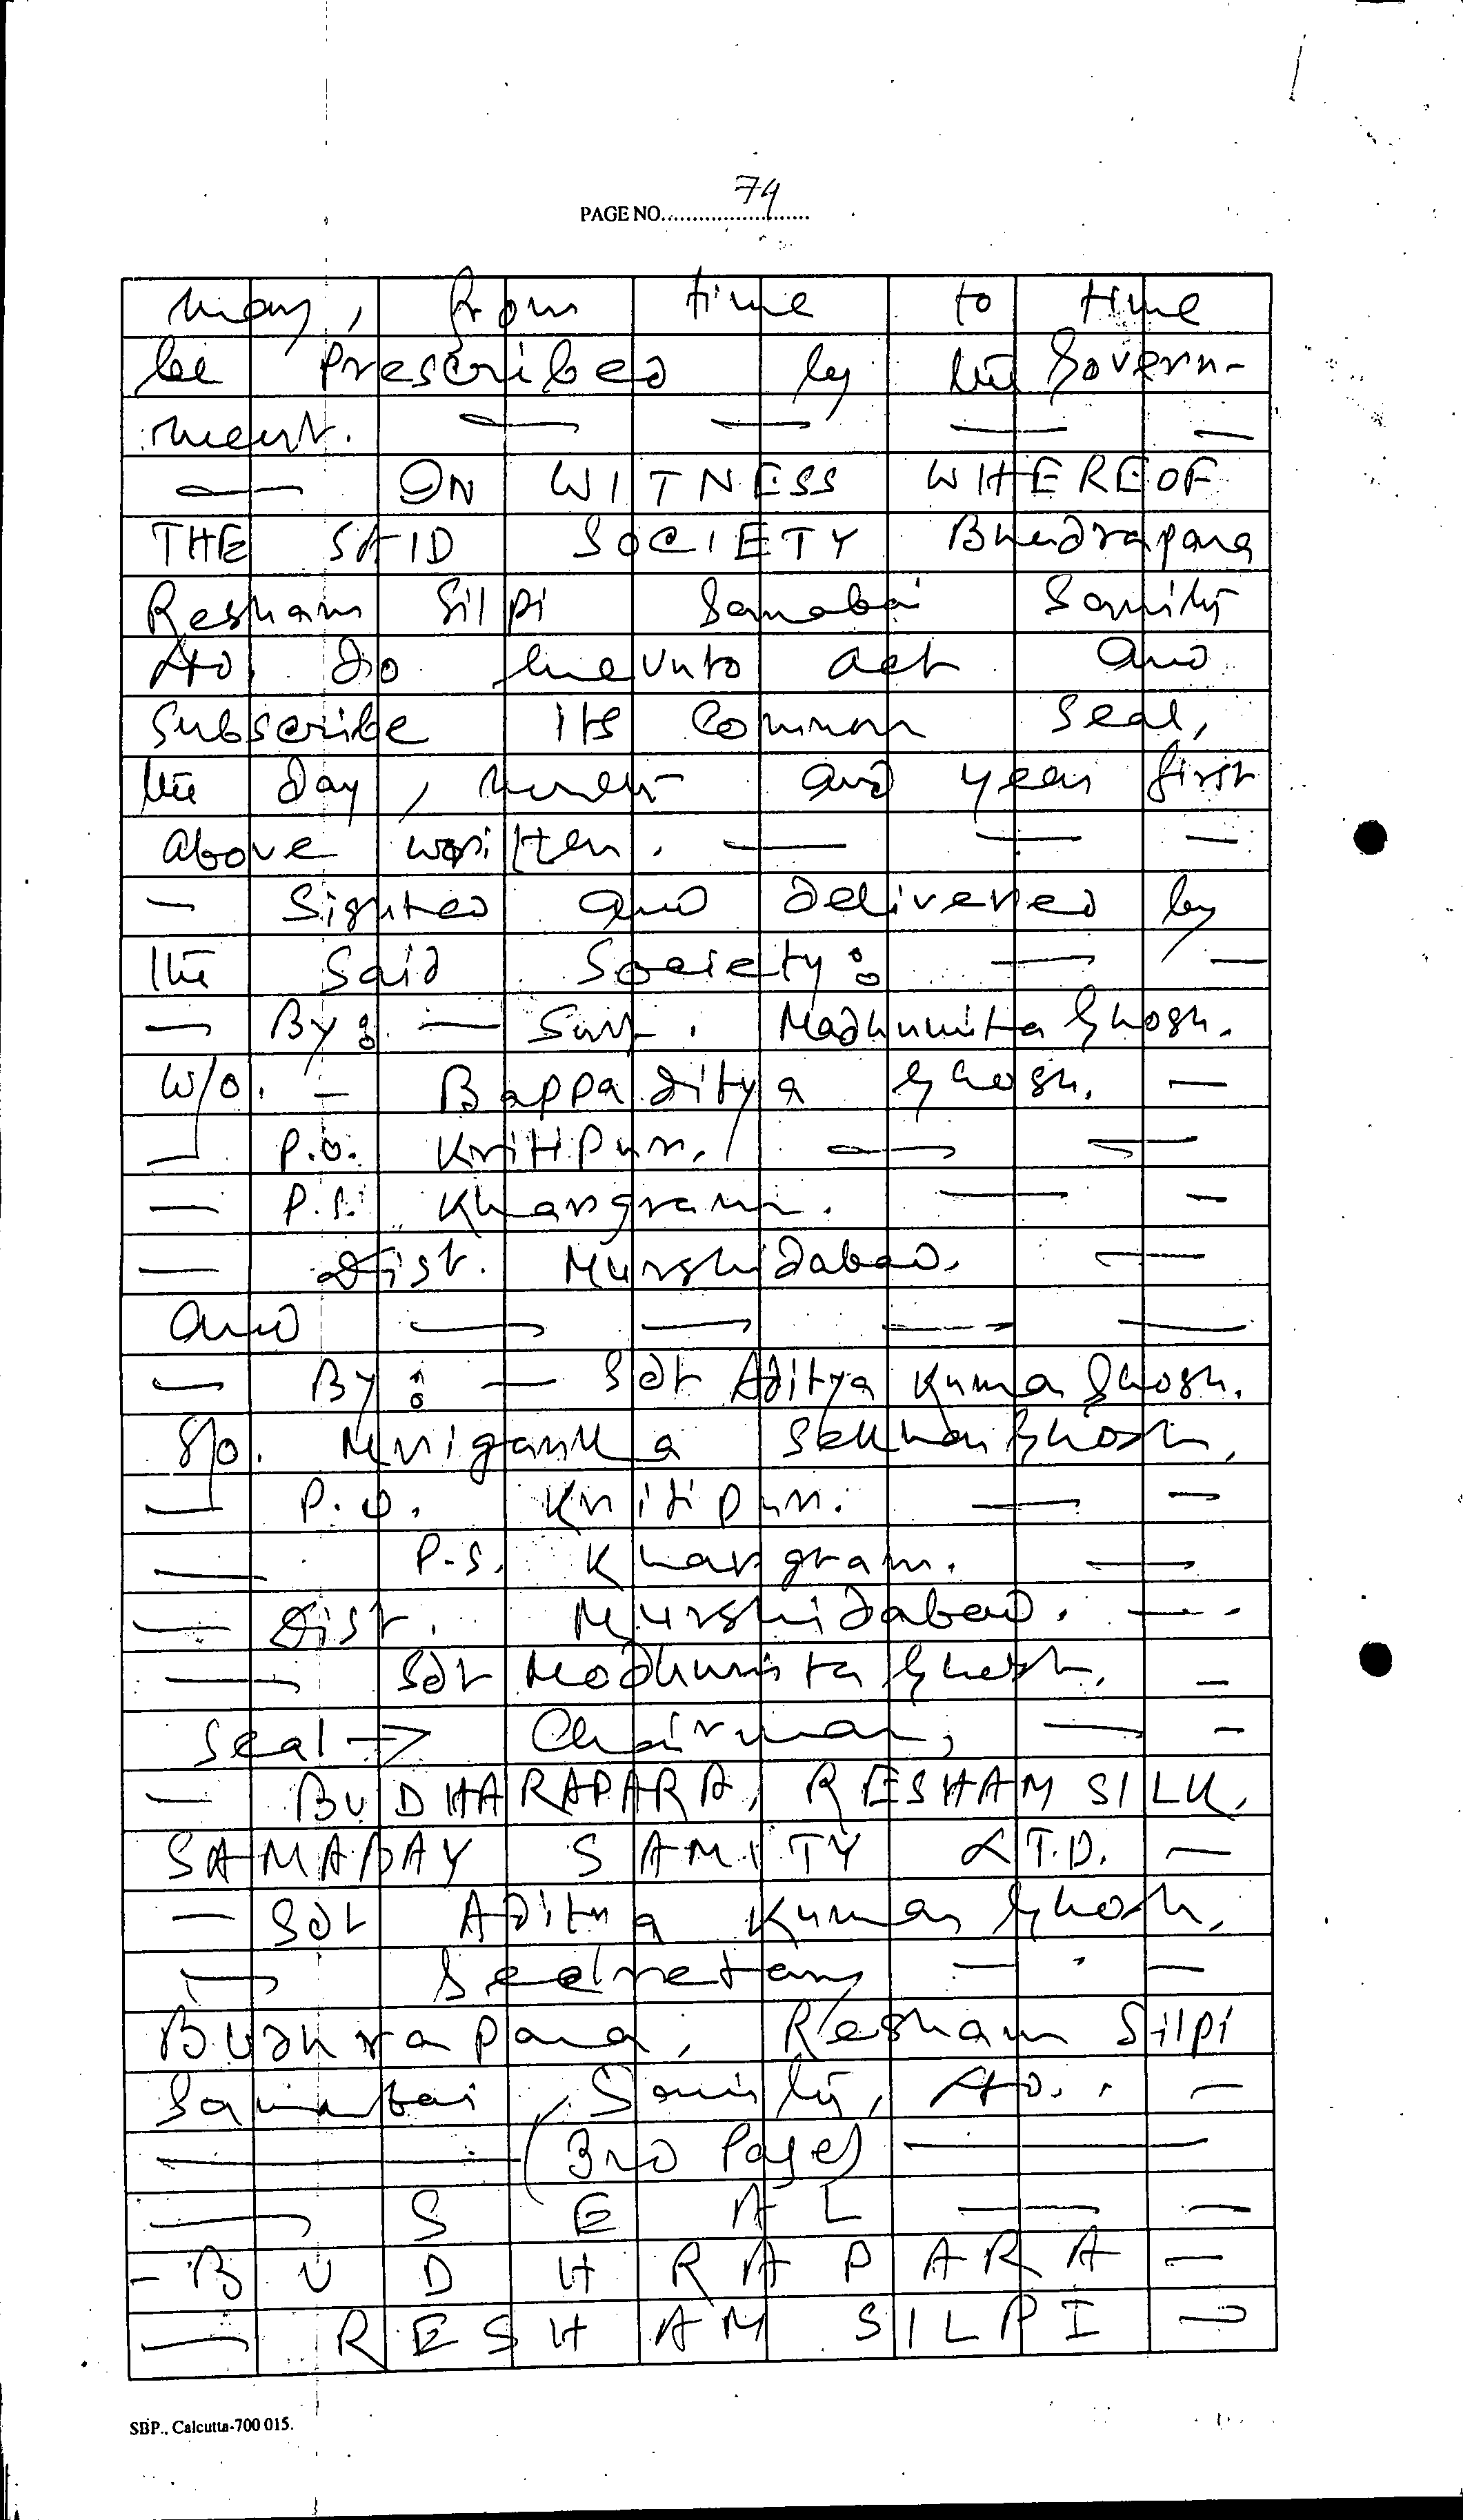 74
PAGE NO.
may, from time to time
be prescribed by the Govern-
ment. — — — —
— ON WITNESS WHEREOF
THE SAID SOCIETY Bhudrapara
Resham Silpi Samabai Samity
Ltd. do hereunto act and
Subscribe its Common Seal,
the day, month and year first
above written. — — —
— Signed and delivered by
the said Society: — —
— By: — Smt. Madhumita Ghosh.
W/o. — Bappaditya Ghosh. —
— P.O. Kritipur. — —
— P.S. Khargram. — —
— Dist. Murshidabad. —
and — — — —
— By: — Sdr Aditya Kumar Ghosh.
S/o. Mriganka Sekhar Ghosh,
— P.O. Kritipur. — —
— P.S. Khargram. —
— Dist. Murshidabad. — -
— Sdr Modhumita Ghosh. —
Seal → Chairman, — -
— BUDHARAPARA, RESHAM SILK,
SAMABAY SAMITY LTD. —
— Sdr Aditya Kumar Ghosh,
— Secretary — —
Budhrapara, Resham Silpi
Samabai, Samity, Ltd. —
— (3rd Page) —
— S E A L — —
- B U D H R A P A R A —
— R E S H A M S I L P I —
SBP., Calcutta-700 015.